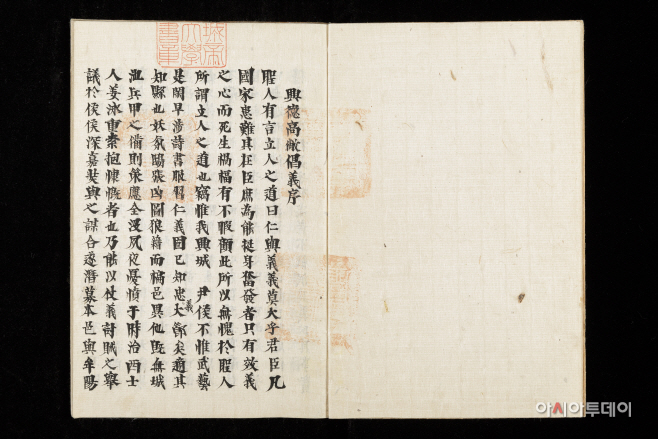 興德高敞倡義序
聖人有言立人之道曰仁與義義莫大乎君臣凡
國家患難其在臣庶為能挺身奮發者只有效義
之心而死生禍福有不暇顧此所以無愧於聖人
所謂立人之道也竊惟我興城 尹侯不惟武藝
是閑早涉詩書服習仁義固已知忠大節矣適其
義
知縣也妖氛陽張凶圖狼藉而縣邑異他既無城
池兵甲之備則策應全沒夙夜憂憤于時治西士
人姜泳重素抱慷慨者也乃能以仗義討賊之舉
議於侯侯深嘉奬與之謀合遂潛募本邑與牟陽
아시아투데이